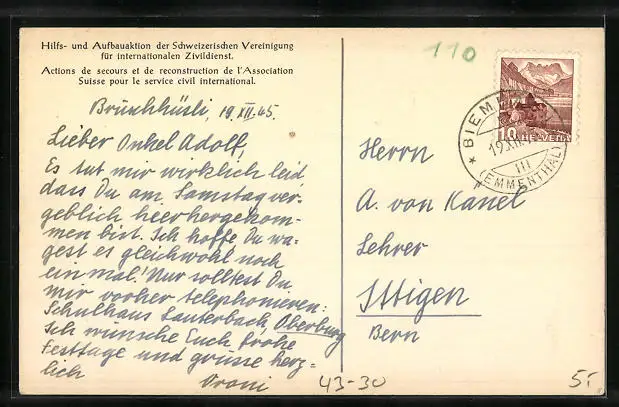 Hilfs- und Aufbauaktion der Schweizerischen Vereinigung
für internationalen Zivildienst.
Actions de secours et de reconstruction de l'Association
Suisse pour le service civil international.
19.XII.45.
Lieber Onkel Adolf,
Es tut mir wirklich leid
dass Du am Samstag ver-
geblich hierhergekom-
men bist. Ich hoffe, Du wa-
gest es gleichwohl noch
einmal! Nur solltest Du
mir vorher telephonieren:
Schulhaus Lauterbach, Oberburg
Ich wünsche Euch frohe
Festtage und grüsse herz-
lich
43-30
110
10 HELVETIA
19.XII.
III
(EMMENTHAL)
Herrn
A. von Känel
Lehrer
Ittigen
Bern
5.-